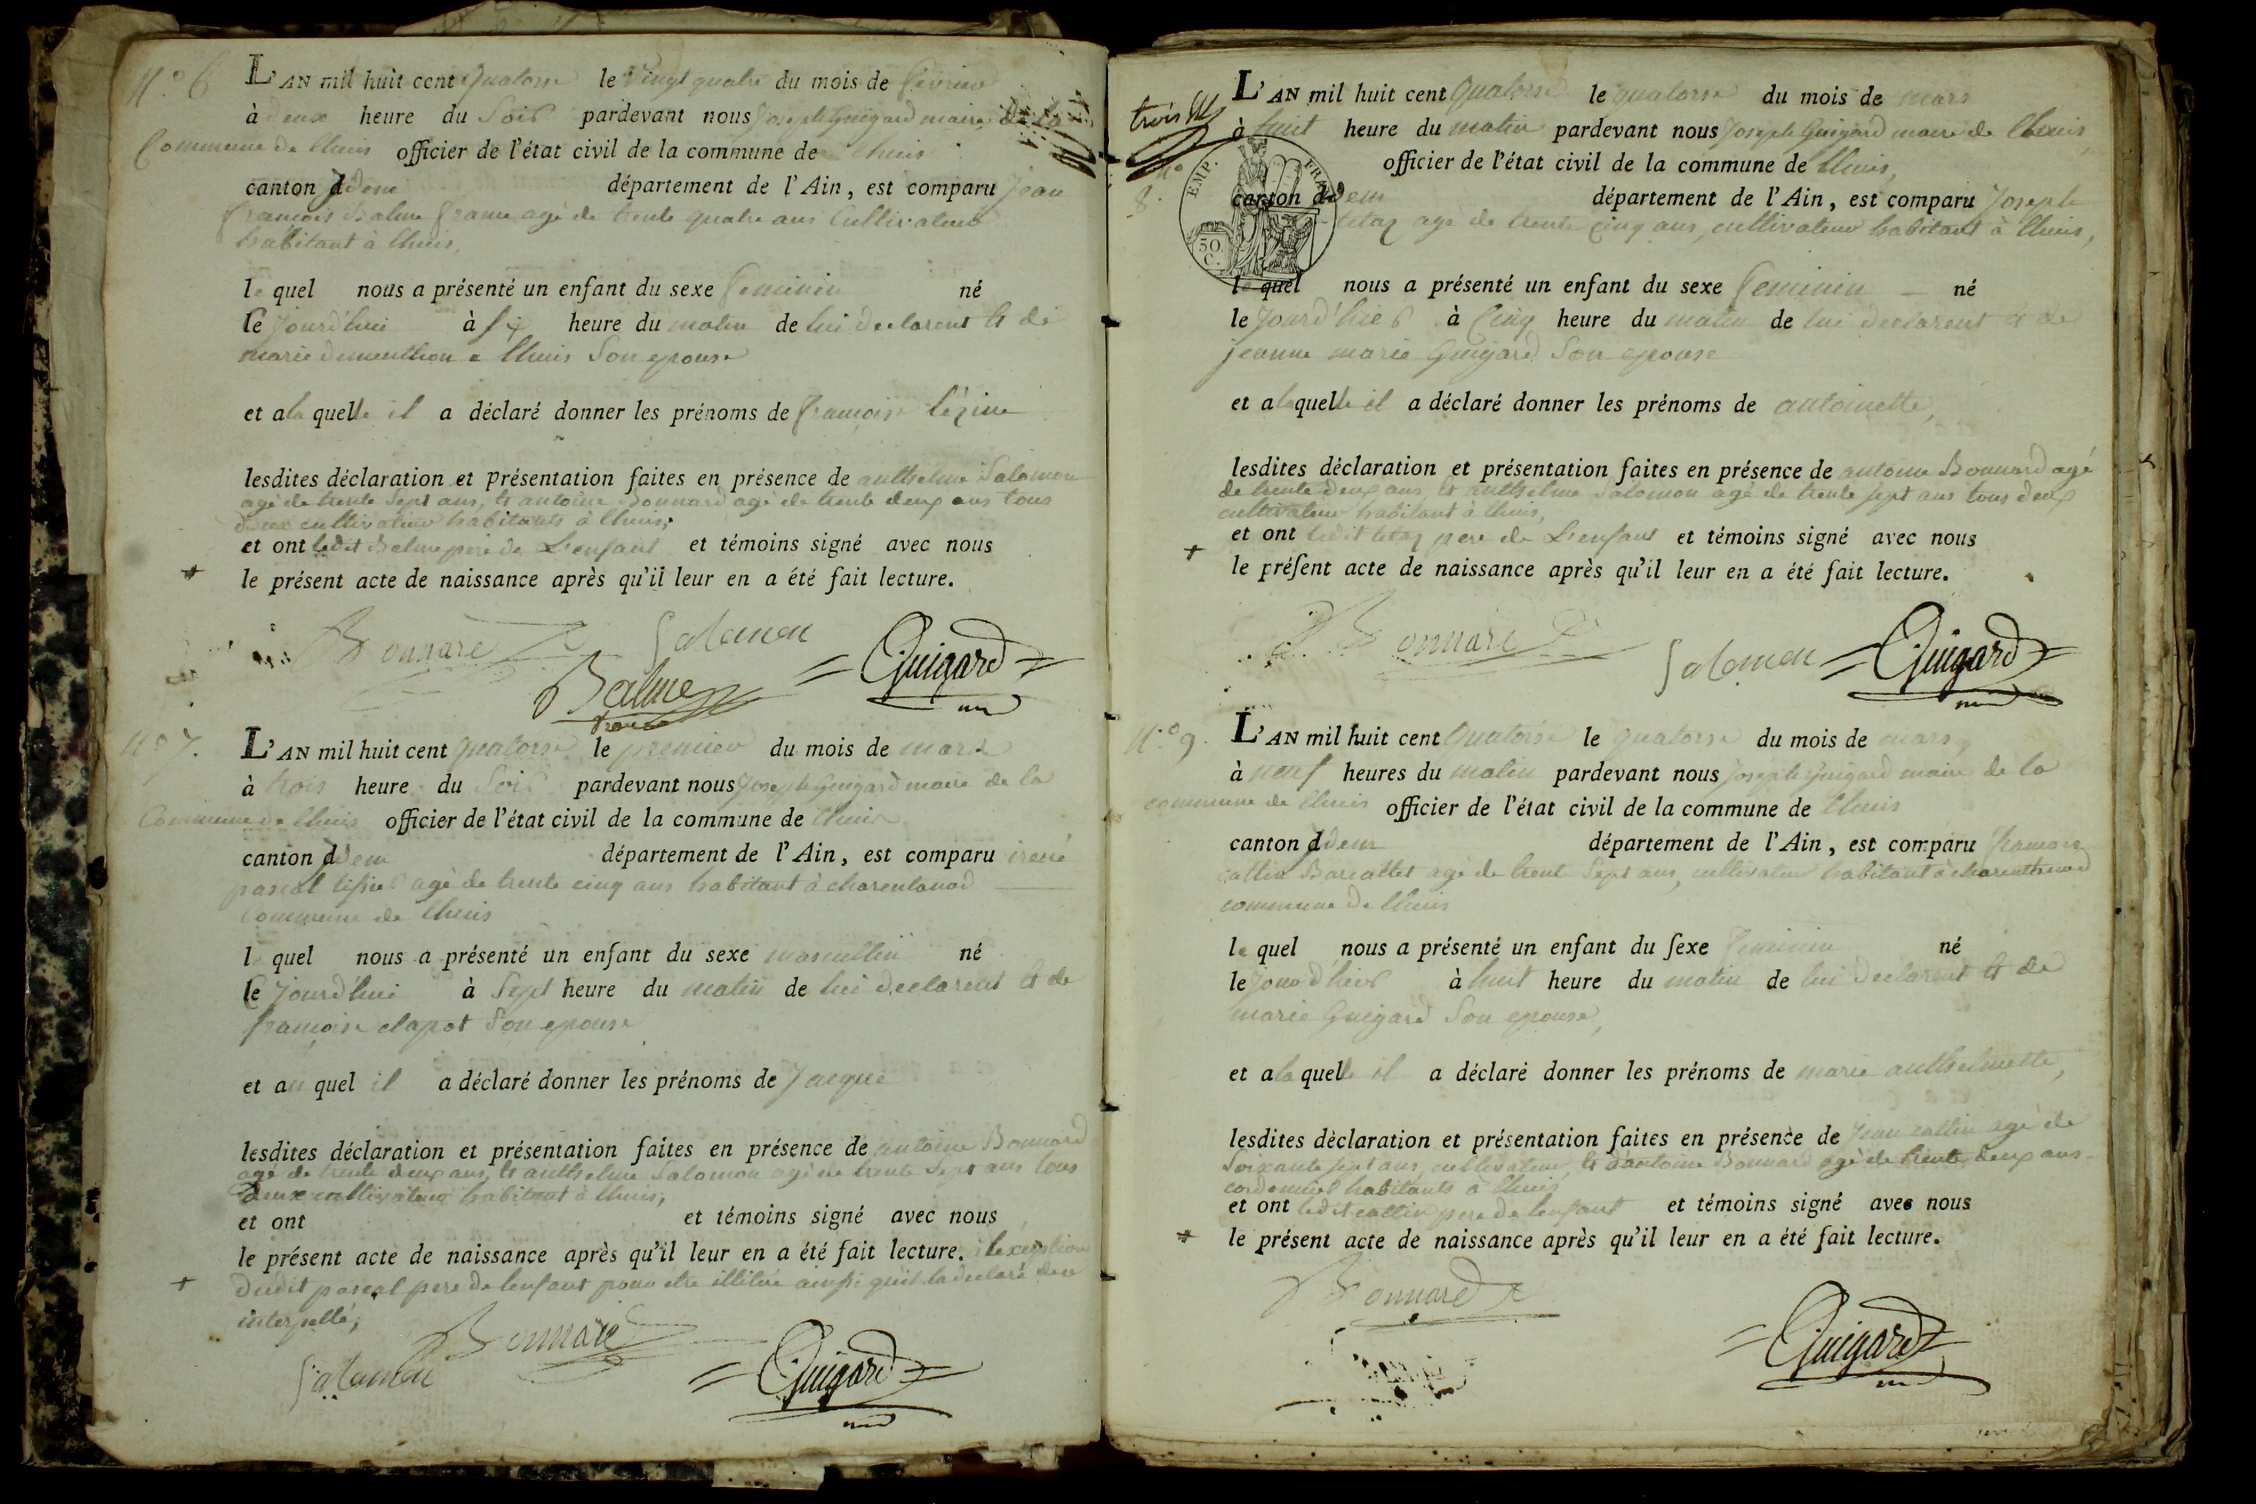 N.º 6
L'AN mil huit cent quatorse le vingt quatre du mois de fevrier
à deux heure du Soir pardevant nous Joseph Guigard maire de la
Commune de lhuis officier de l'état civil de la commune de lhuis
canton idem département de l'Ain, est comparu Jean
françois Balme franc agé de trente quatre ans Cultivateur
habitant à lhuis,
le quel nous a présenté un enfant du sexe feminin né
le jourd'hui à six heure du matin de lui declarent et de
marie dumenthon a lhuis Son epouse
et ala quelle il a déclaré donner les prénoms de françoise
lesdites déclaration et présentation faites en présence de anthelme Salomon
agé de trente Sept ans, et antoine Bonnard agé de trente deux ans tous
deux cultivateur habitants à lhuis,
et ont ledit Balme pere de L'enfant et témoins signé avec nous
le présent acte de naissance après qu'il leur en a été fait lecture.
Bonnard Salomon
Balme franc Guigard
Nº 7.
L'AN mil huit cent quatorse le premier du mois de mars
à trois heure du Soir pardevant nous Joseph Guigard maire de la
Commune de lhuis officier de l'état civil de la commune de lhuis
canton idem département de l'Ain, est comparu
pascal agé de trente cinq ans habitant à charentonod
Commune de lhuis
le quel nous a présenté un enfant du sexe masculin né
le jourd'hui à Sept heure du matin de lui declarent et de
françoise clapot Son epouse
et au quel il a déclaré donner les prénoms de Jacque
lesdites déclaration et présentation faites en présence de antoine Bonnard
agé de trente deux ans, et anthelme Salomon agé de trente Sept ans tous
deux cultivateur habitant à lhuis,
et ont et témoins signé avec nous
le présent acte de naissance après qu'il leur en a été fait lecture. à lexception
dudit pascal pere de lenfant pour etre illitéré ainsi quil la declaré de ce
interpellé,
Bonnard
Salomon Guigard
trois
Nº 8.
EMP. FRAN
50. C.
L'AN mil huit cent quatorse le quatorse du mois de mars
à huit heure du matin pardevant nous Joseph Guigard maire de lhuis
officier de l'état civil de la commune de lhuis,
canton idem département de l'Ain, est comparu Joseph
tetaz agé de trente cinq ans, cultivateur habitant à lhuis,
le quel nous a présenté un enfant du sexe feminin né
le jourd'hui à Cinq heure du matin de lui declarent et de
jeanne marie Guigard Son epouse
et ala quelle il a déclaré donner les prénoms de antoinette,
lesdites déclaration et présentation faites en présence de antoine Bonnard agé
de trente deux ans, et anthelme Salomon agé de trente sept ans tous deux
cultivateur habitant à lhuis,
et ont ledit tetaz pere de L'enfant et témoins signé avec nous
le préſent acte de naissance après qu'il leur en a été fait lecture.
Bonnard Salomon Guigard
N.º 9.
L'AN mil huit cent quatorse le quatorse du mois de mars,
à neuf heures du matin pardevant nous Joseph Guigard maire de la
commune de lhuis officier de l'état civil de la commune de lhuis
canton idem département de l'Ain, est comparu francois
cattin Barcattet agé de trente Sept ans, cultivateur habitant à charentonod
commune de lhuis
le quel nous a présenté un enfant du ſexe feminin né
le jourd'hui à huit heure du matin de lui declarent et de
marie Guigard Son epouse,
et ala quelle il a déclaré donner les prénoms de marie anthelmette,
lesdites déclaration et présentation faites en présence de Jean cattin agé de
Soixante sept ans, cultivateur, et d'antoine Bonnard agé de trente deux ans
cordonnier habitants à lhuis
et ont ledit cattin pere de lenfant et témoins signé avec nous
le présent acte de naissance après qu'il leur en a été fait lecture.
Bonnard
Guigard